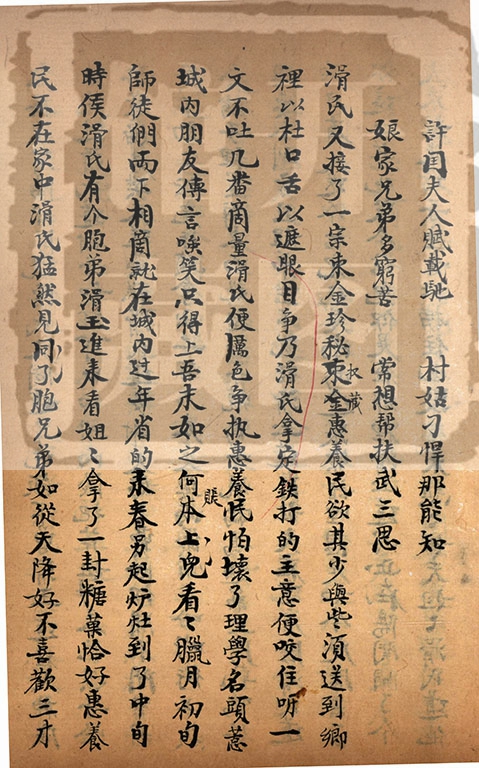 許囯夫人賦載馳 村姑刁悍那能知
娘家兄弟多窮苦 常想帮扶武三思
滑氏又接了一宗束金珍秘束金惠養民欲其少與些須送到鄉
收藏
裡以杜口舌以遮眼目争乃滑氏拿定鉄打的主意便咬住听一
文不吐几畨商量滑氏便厲色争执惠養民怕壞了理學名頭惹
城內朋友傳言唉笑只得上吾末如之何本上兑看〻臘月初旬
賬
師徒們兩下相商就在城內过年省的来春另起炉灶到了中旬
時侯滑氏有个胞弟滑玉進来看姐〻拿了一封糖菓恰好惠養
民不在家中滑氏猛然見同了胞兄弟如從天降好不喜歡三才